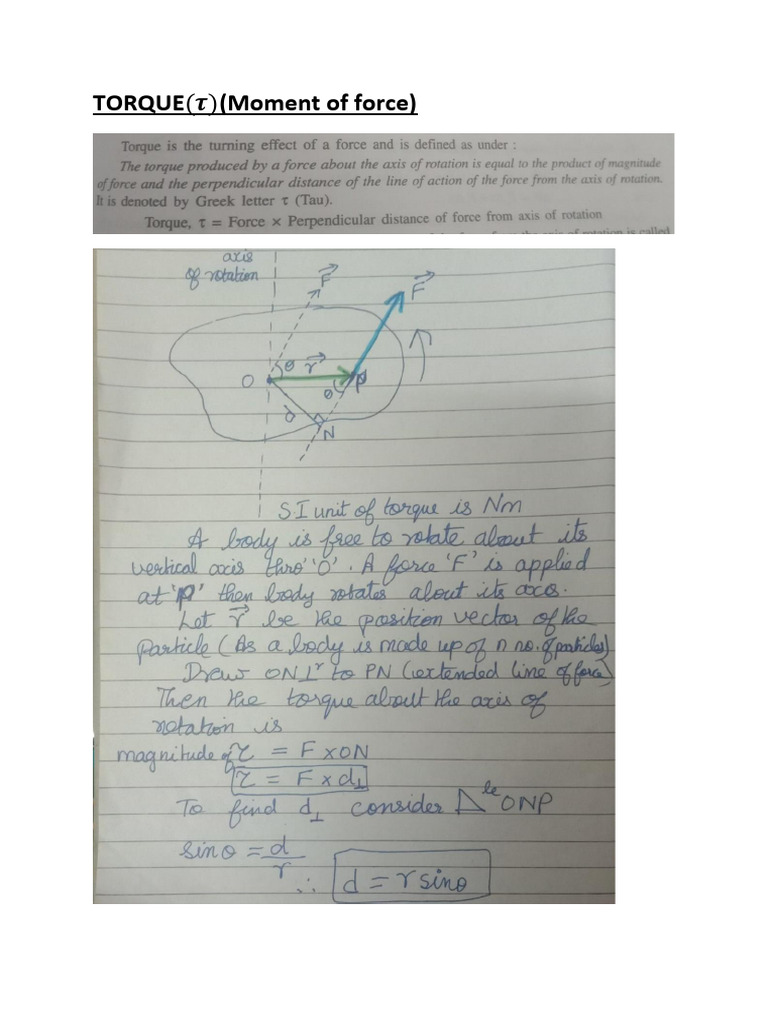 TORQUE(τ)(Moment of force)
Torque is the turning effect of a force and is defined as under :
The torque produced by a force about the axis of rotation is equal to the product of magnitude
of force and the perpendicular distance of the line of action of the force from the axis of rotation.
It is denoted by Greek letter τ (Tau).
Torque, τ = Force × Perpendicular distance of force from axis of rotation
of rotation is called
axis
of rotation
F
F
θ r
O
P
θ
d
N
S.I unit of torque is Nm
A body is free to rotate about its
vertical axis thro' 'O'. A force 'F' is applied
at 'P' then body rotates about its axis.
Let r be the position vector of the
particle (As a body is made up of n no. of particles)
Draw ON ⊥r to PN (extended line of force)
Then the torque about the axis of
rotation is
magnitude of τ = F x ON
τ = F x d⊥
To find d⊥ consider △le ONP
sinθ = d/r
∴ d = r sinθ